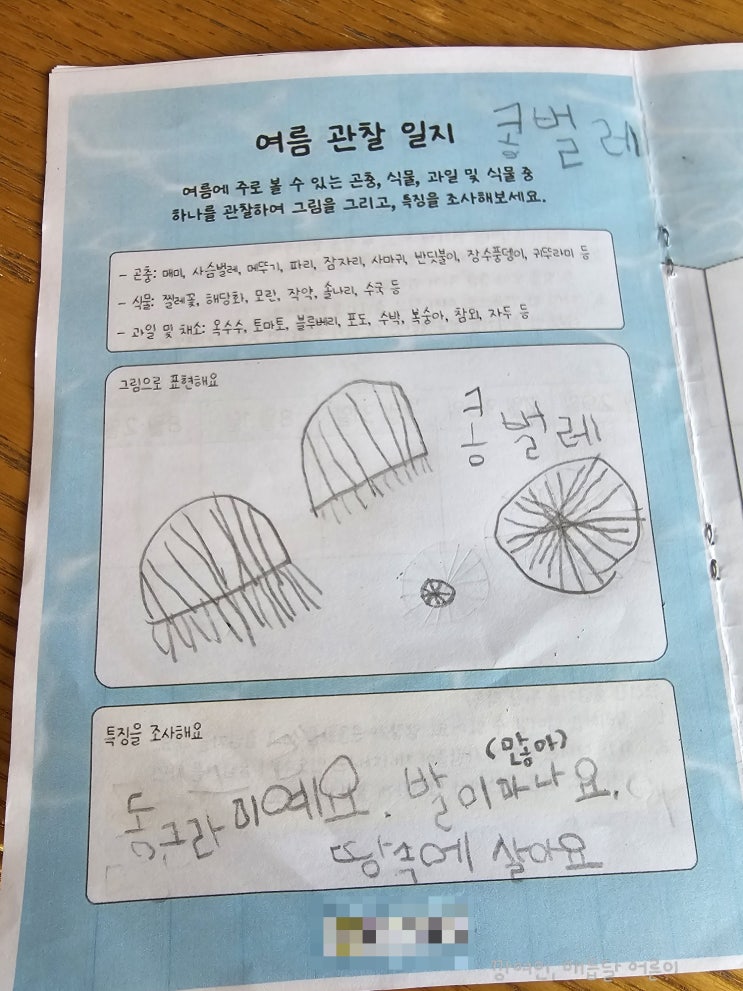 여름 관찰 일지 콩벌레
여름에 주로 볼 수 있는 곤충, 식물, 과일 및 식물 중
하나를 관찰하여 그림을 그리고, 특징을 조사해보세요.
- 곤충: 매미, 사슴벌레, 메뚜기, 파리, 잠자리, 사마귀, 반딧불이, 장수풍뎅이, 귀뚜라미 등
- 식물: 찔레꽃, 해당화, 모란, 작약, 솔나리, 수국 등
- 과일 및 채소: 옥수수, 토마토, 블루베리, 포도, 수박, 복숭아, 참외, 자두 등
그림으로 표현해요
콩벌레
특징을 조사해요
(많아)
동그라미예요. 발이마나요.
땅속에 살아요